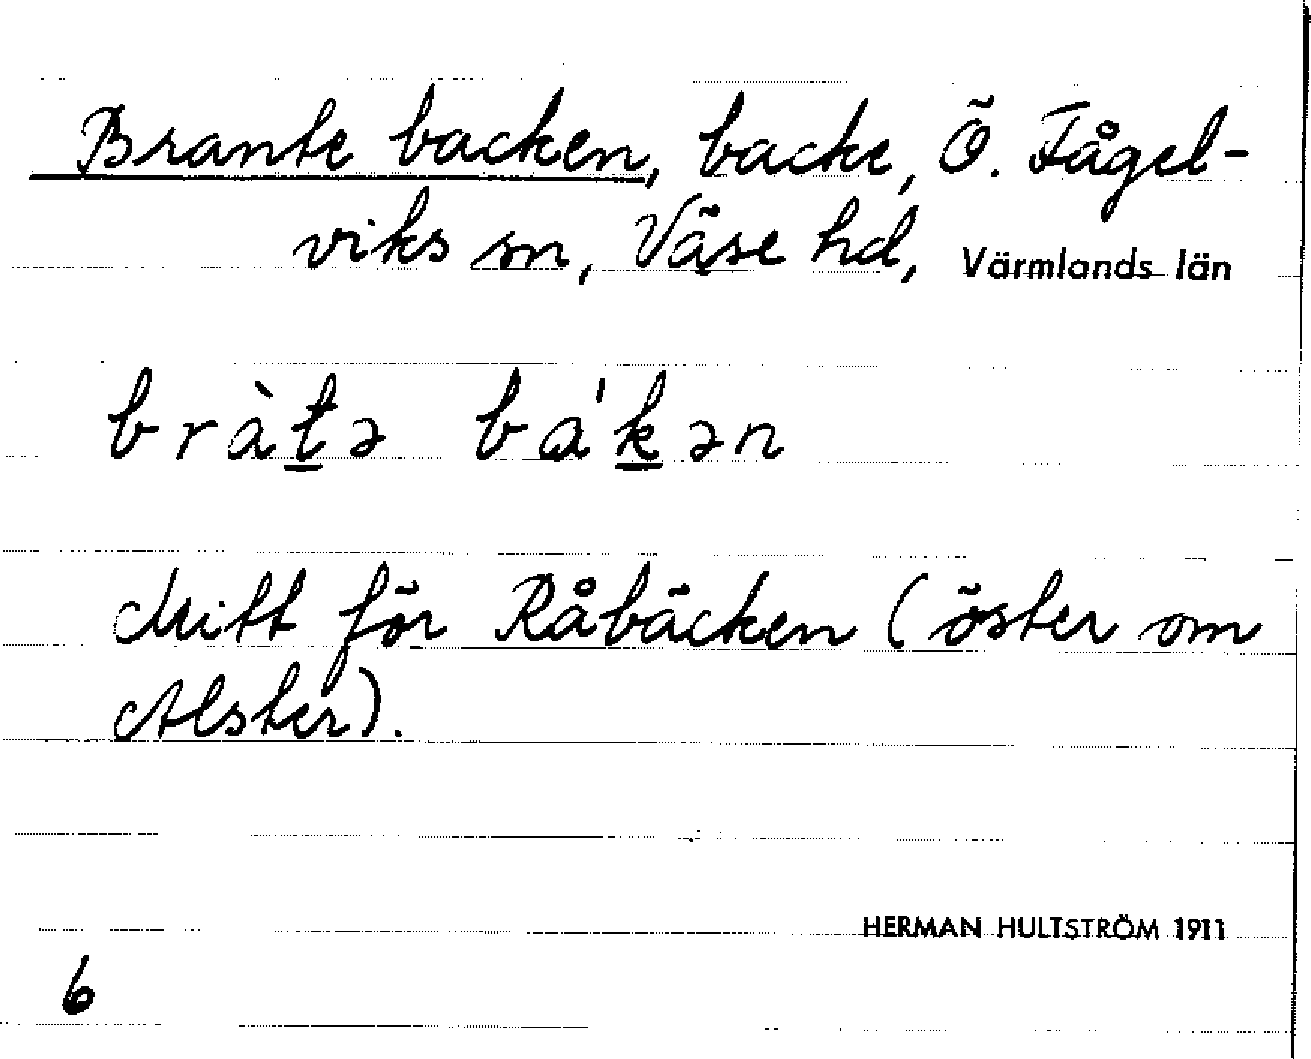 Brante backen, backe, Ö. Fågel-
viks sn, Väse hd, Värmlands län
bràtə ba'kən
Mitt för Råbäcken (öster om
Alster).
HERMAN HULTSTRÖM 1911
6